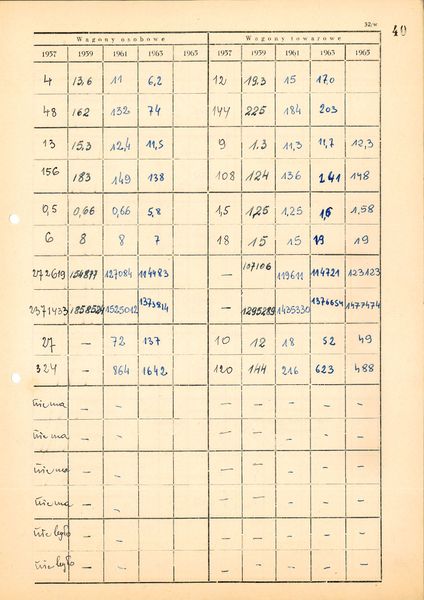 32/w
40
Wagony osobowe Wagony towarowe
1957 1959 1961 1963 1965 1957 1959 1961 1963 1965
4 13,6 11 6,2 12 19.3 15 17,0
48 162 132 74 144 225 184 203
13 15,3 12,4 11,5 9 1.3 11,3 11,7 12,3
156 183 149 138 108 124 136 141 148
0,5 0,66 0,66 5,8 1,5 1,25 1,25 1,6 1,58
6 8 8 7 18 15 15 19 19
272619 154877 127084 114483 — 107106 119611 114721 123123
2371433 1858524 1525012 1373814 — 1295289 1435330 1376654 1477474
27 — 72 137 10 12 18 52 49
324 — 864 1642 120 144 216 623 488
nie ma — — — — — — —
nie ma — — — — — — —
nie ma — — — — — — —
nie ma — — — — — — —
nie było — — — — — — —
nie było — — — — — — —